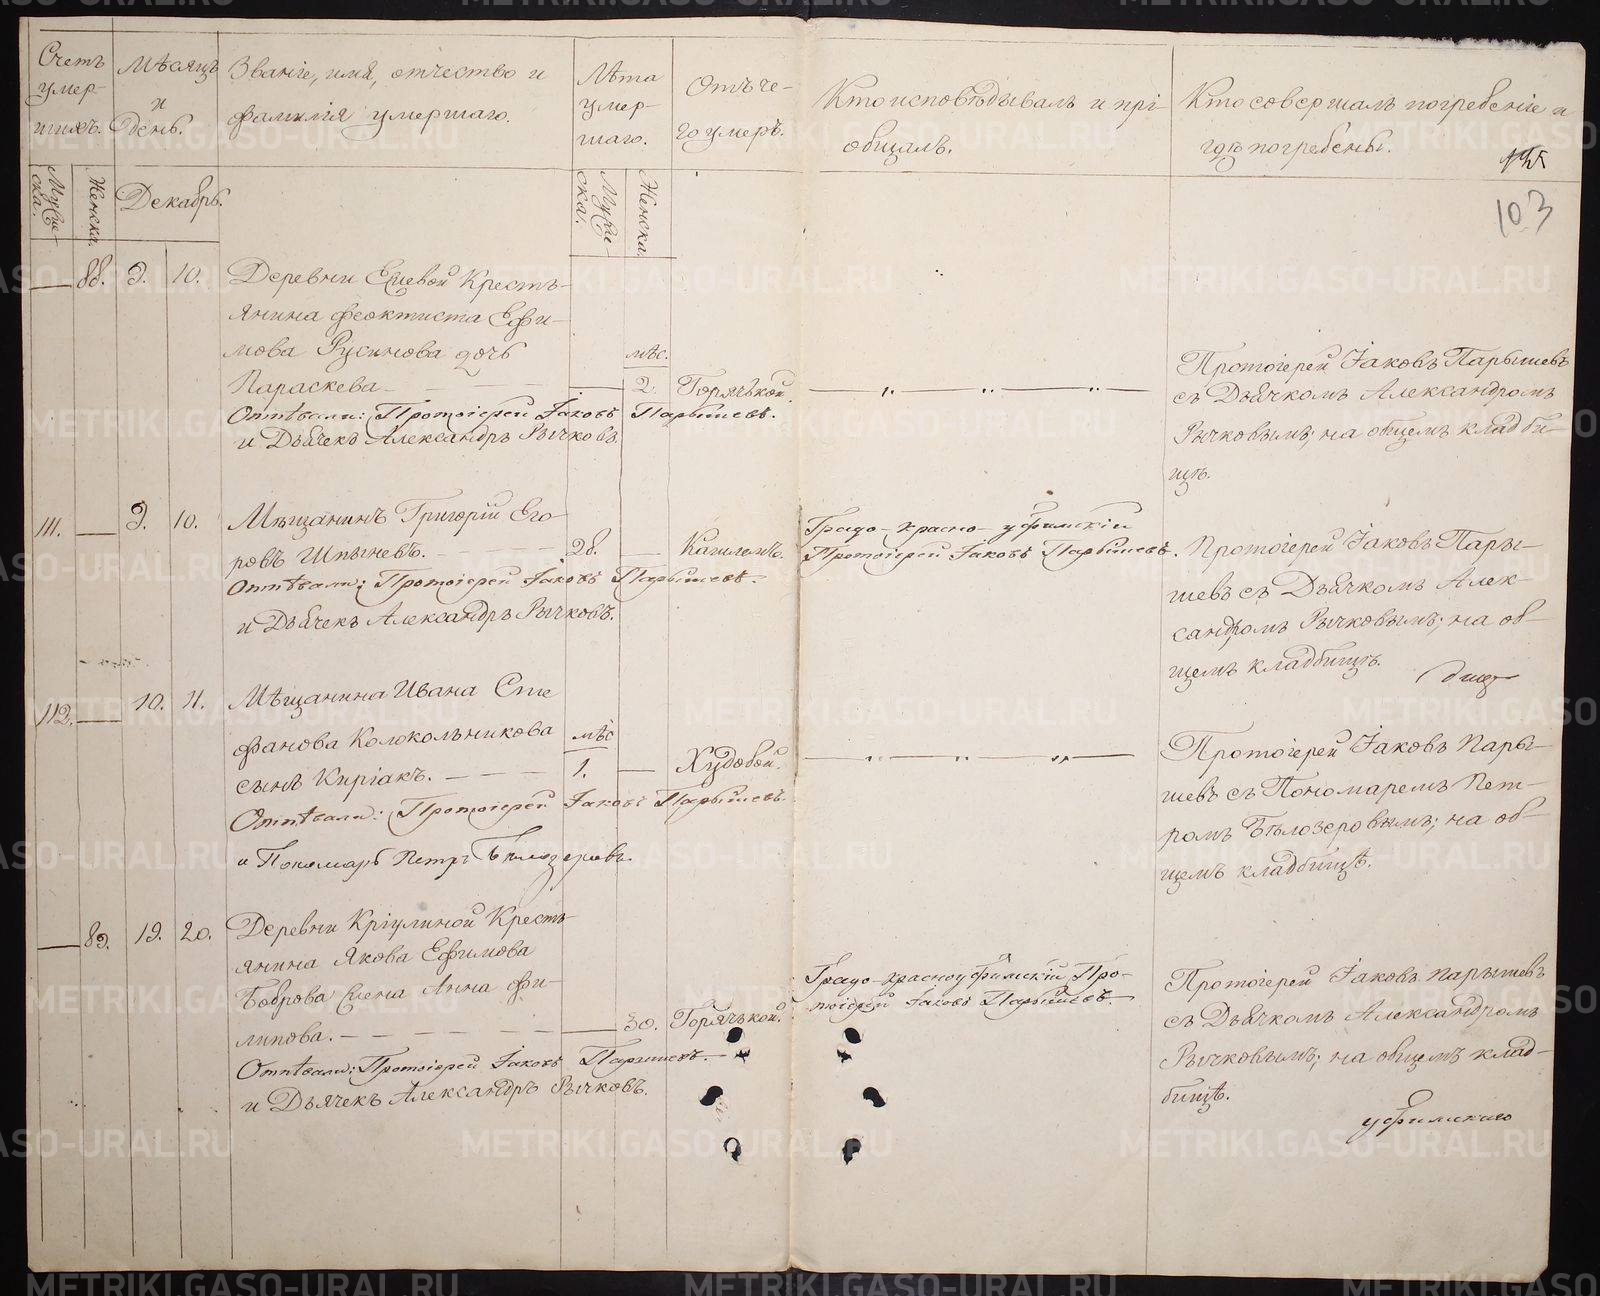 Счетъ умер-
шихъ.
Мѣсяцъ
и
день.
Званіе, имя, отчество и
фамилія умершаго.
Лѣта
умер-
шаго.
Отъ че-
го умеръ.
Кто исповѣдывалъ и прі-
общалъ.
Кто совершалъ погребеніе и
гдѣ погребены.
103
Мужe-
ска.
Женска.
Декабрь.
Мужe-
ска.
Женска.
88. 9. 10. Деревни Ецевой Кресть-
янина Феоктиста Ефи-
мова Русинова дочь
мѣс.
Параскева 2. Горячькой.
Отпѣвали: Протоіерей Іаковъ Парышевъ.
и Дьячекъ Александръ Рычковъ.
Протоіерей Іаковъ Парышевъ
съ Дьячкомъ Александромъ
Рычковымъ; на общемъ кладби-
щѣ.
111. 9. 10. Мѣщанинъ Григорій Его-
ровъ Шпыневъ. 28. Кашлемъ.
Отпѣвали: Протоіерей Іаковъ Парышевъ.
и Дьячекъ Александръ Рычковъ.
Градо-Красно-уфимскій
Протоіерей Іаковъ Парышевъ.
Протоіерей Іаковъ Пары-
шевъ съ Дьячкомъ Алек-
сандромъ Рычковымъ; на об-
щемъ кладбищѣ.
112. 10. 11. Мѣщанина Ивана Сте
фанова Колокольникова
мѣс
сынъ Киріакъ. 1. Худобой.
Отпѣвали: Протоіерей Іаковъ Парышевъ.
и Пономарь Петръ Бѣлозеровъ.
Протоіерей Іаковъ Пары-
шевъ съ Пономаремъ Пет-
ромъ Бѣлозеровымъ; на об-
щемъ кладбищѣ.
89. 19. 20. Деревни Кріулиной Кресть-
янина Якова Ефимова
Боброва жена Анна Фи-
липова. 30. Горячькой.
Отпѣвали: Протоіерей Іаковъ Парышевъ.
и Дьячекъ Александръ Рычковъ.
Градо-красноуфимскій Про-
тоіерей Іаковъ Парышевъ.
Протоіерей Іаковъ Парышевъ
съ Дьячкомъ Александромъ
Рычковымъ; на общемъ клад-
бищѣ.
уфимскаго
METRIKI.GASO-URAL.RU